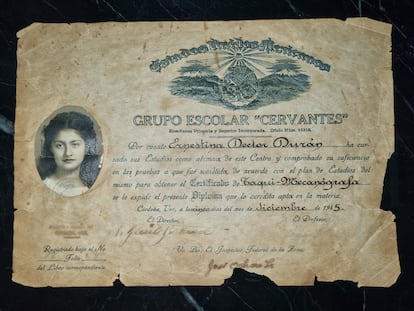 Estados Unidos Mexicanos
GRUPO ESCOLAR "CERVANTES"
Enseñanza Primaria y Superior Incorporada.
Por cuanto Ernestina Doctor Durán ha cur-
sado sus Estudios como alumna de este Centro y comprobado su suficiencia
en las pruebas a que fué sometida de acuerdo con el plan de Estudios del
mismo para obtener el Certificado de Taqui-Mecanógrafa
se le expide el presente Diploma que la acredita apta en la materia.
Córdoba, Ver., a treinta días del mes de diciembre de 1945.
El Director
El Profesor
Vo. Bo. El Inspector Federal de la Zona
Registrado bajo el No
Folio
del Libro correspondiente